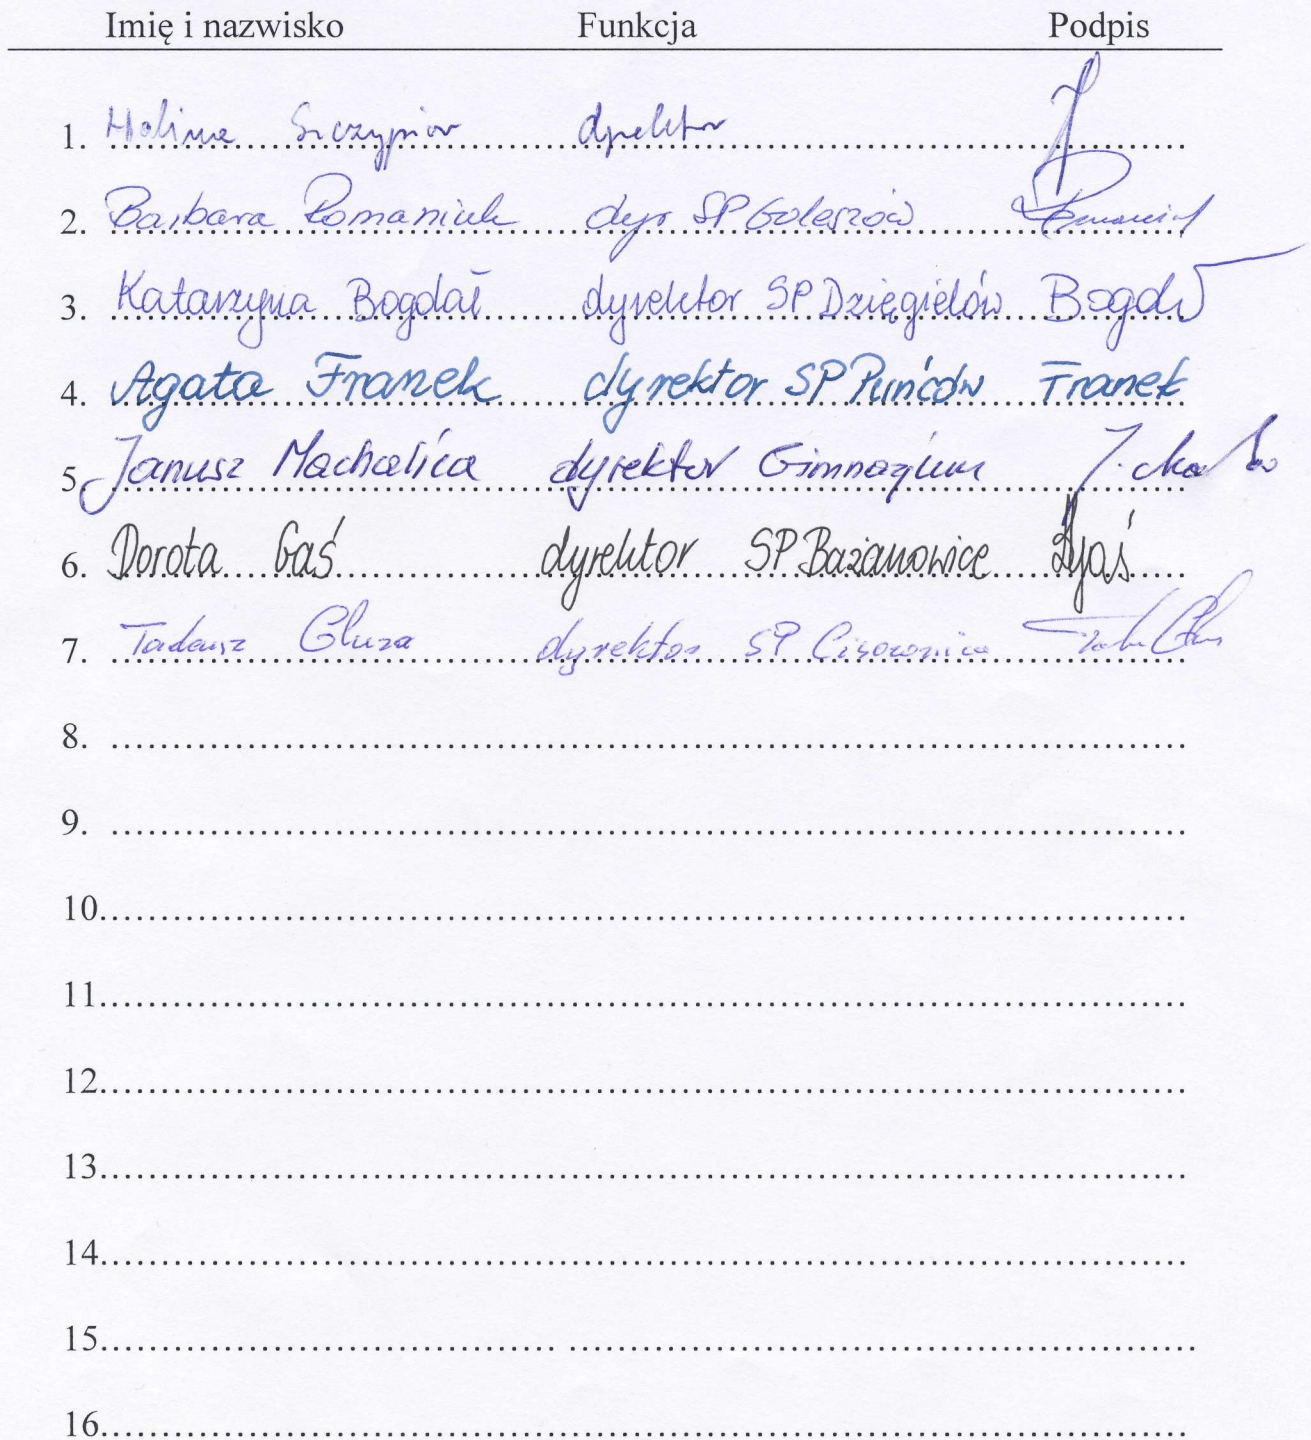 Imię i nazwisko Funkcja Podpis
1. Halina Szczypior dyrektor
2. Barbara Romaniuk dyr SP Goleszów
3. Katarzyna Bogdał dyrektor SP Dzięgielów Bogdał
4. Agata Franek dyrektor SP Puńców Franek
5. Janusz Machalica dyrektor Gimnazjum
6. Dorota Gaś dyrektor SP Bażanowice DGaś
7. Tadeusz Gluza dyrektor SP Cisownica
8.
9.
10.
11.
12.
13.
14.
15.
16.